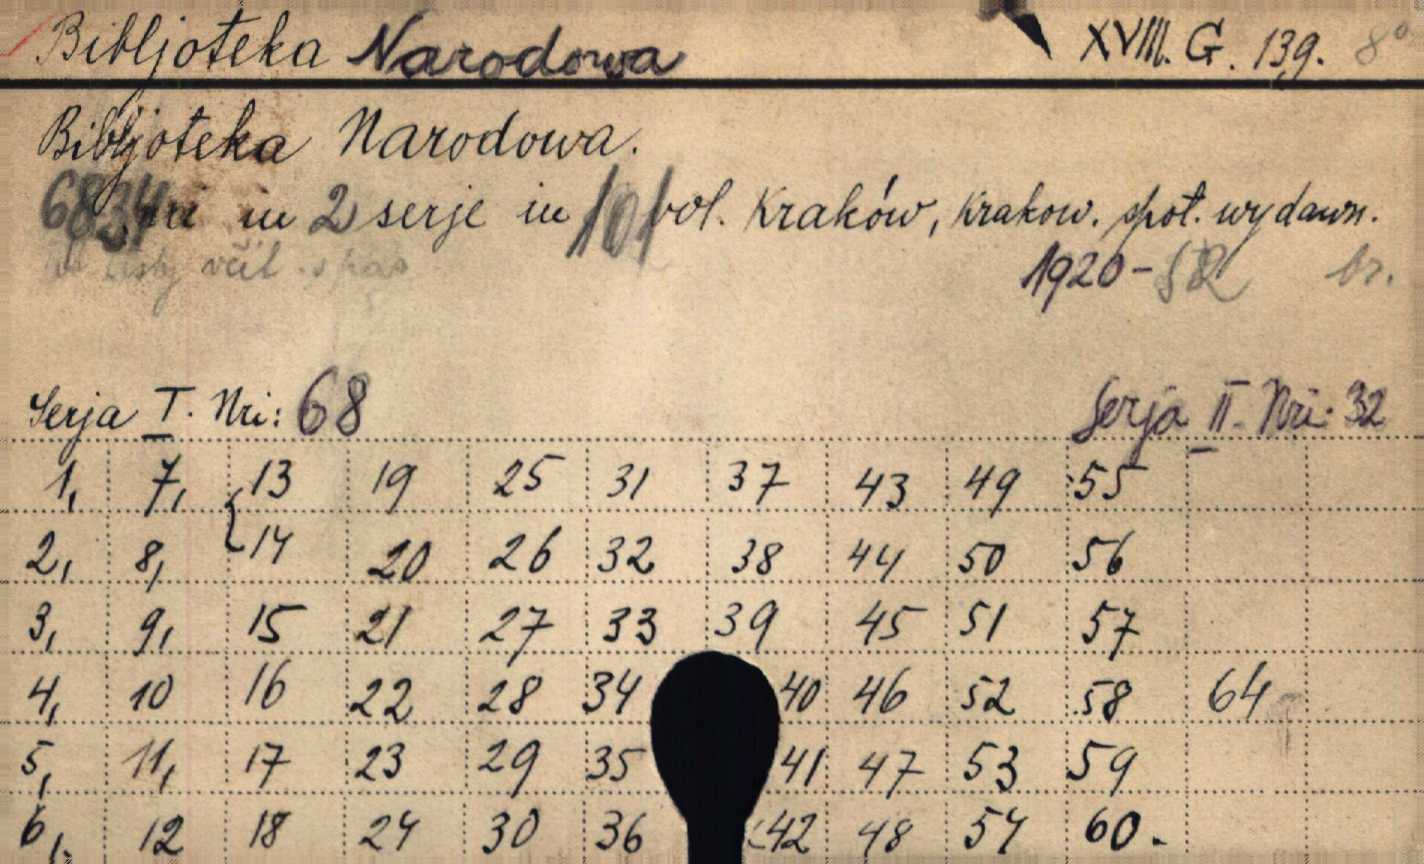 Bibljoteka Narodowa XVIII. G. 139. 8°
Bibljoteka Narodowa.
in 2 serje in 101 vol. Kraków, Krakow. społ. wydawn.
1920- br.
Serja I. Nri: 68 Serja II. Nri: 32
1, 7, 13 19 25 31 37 43 49 55
2, 8, 14 20 26 32 38 44 50 56
3, 9, 15 21 27 33 39 45 51 57
4, 10 16 22 28 34 40 46 52 58 64
5, 11, 17 23 29 35 41 47 53 59
6, 12 18 24 30 36 42 48 54 60.